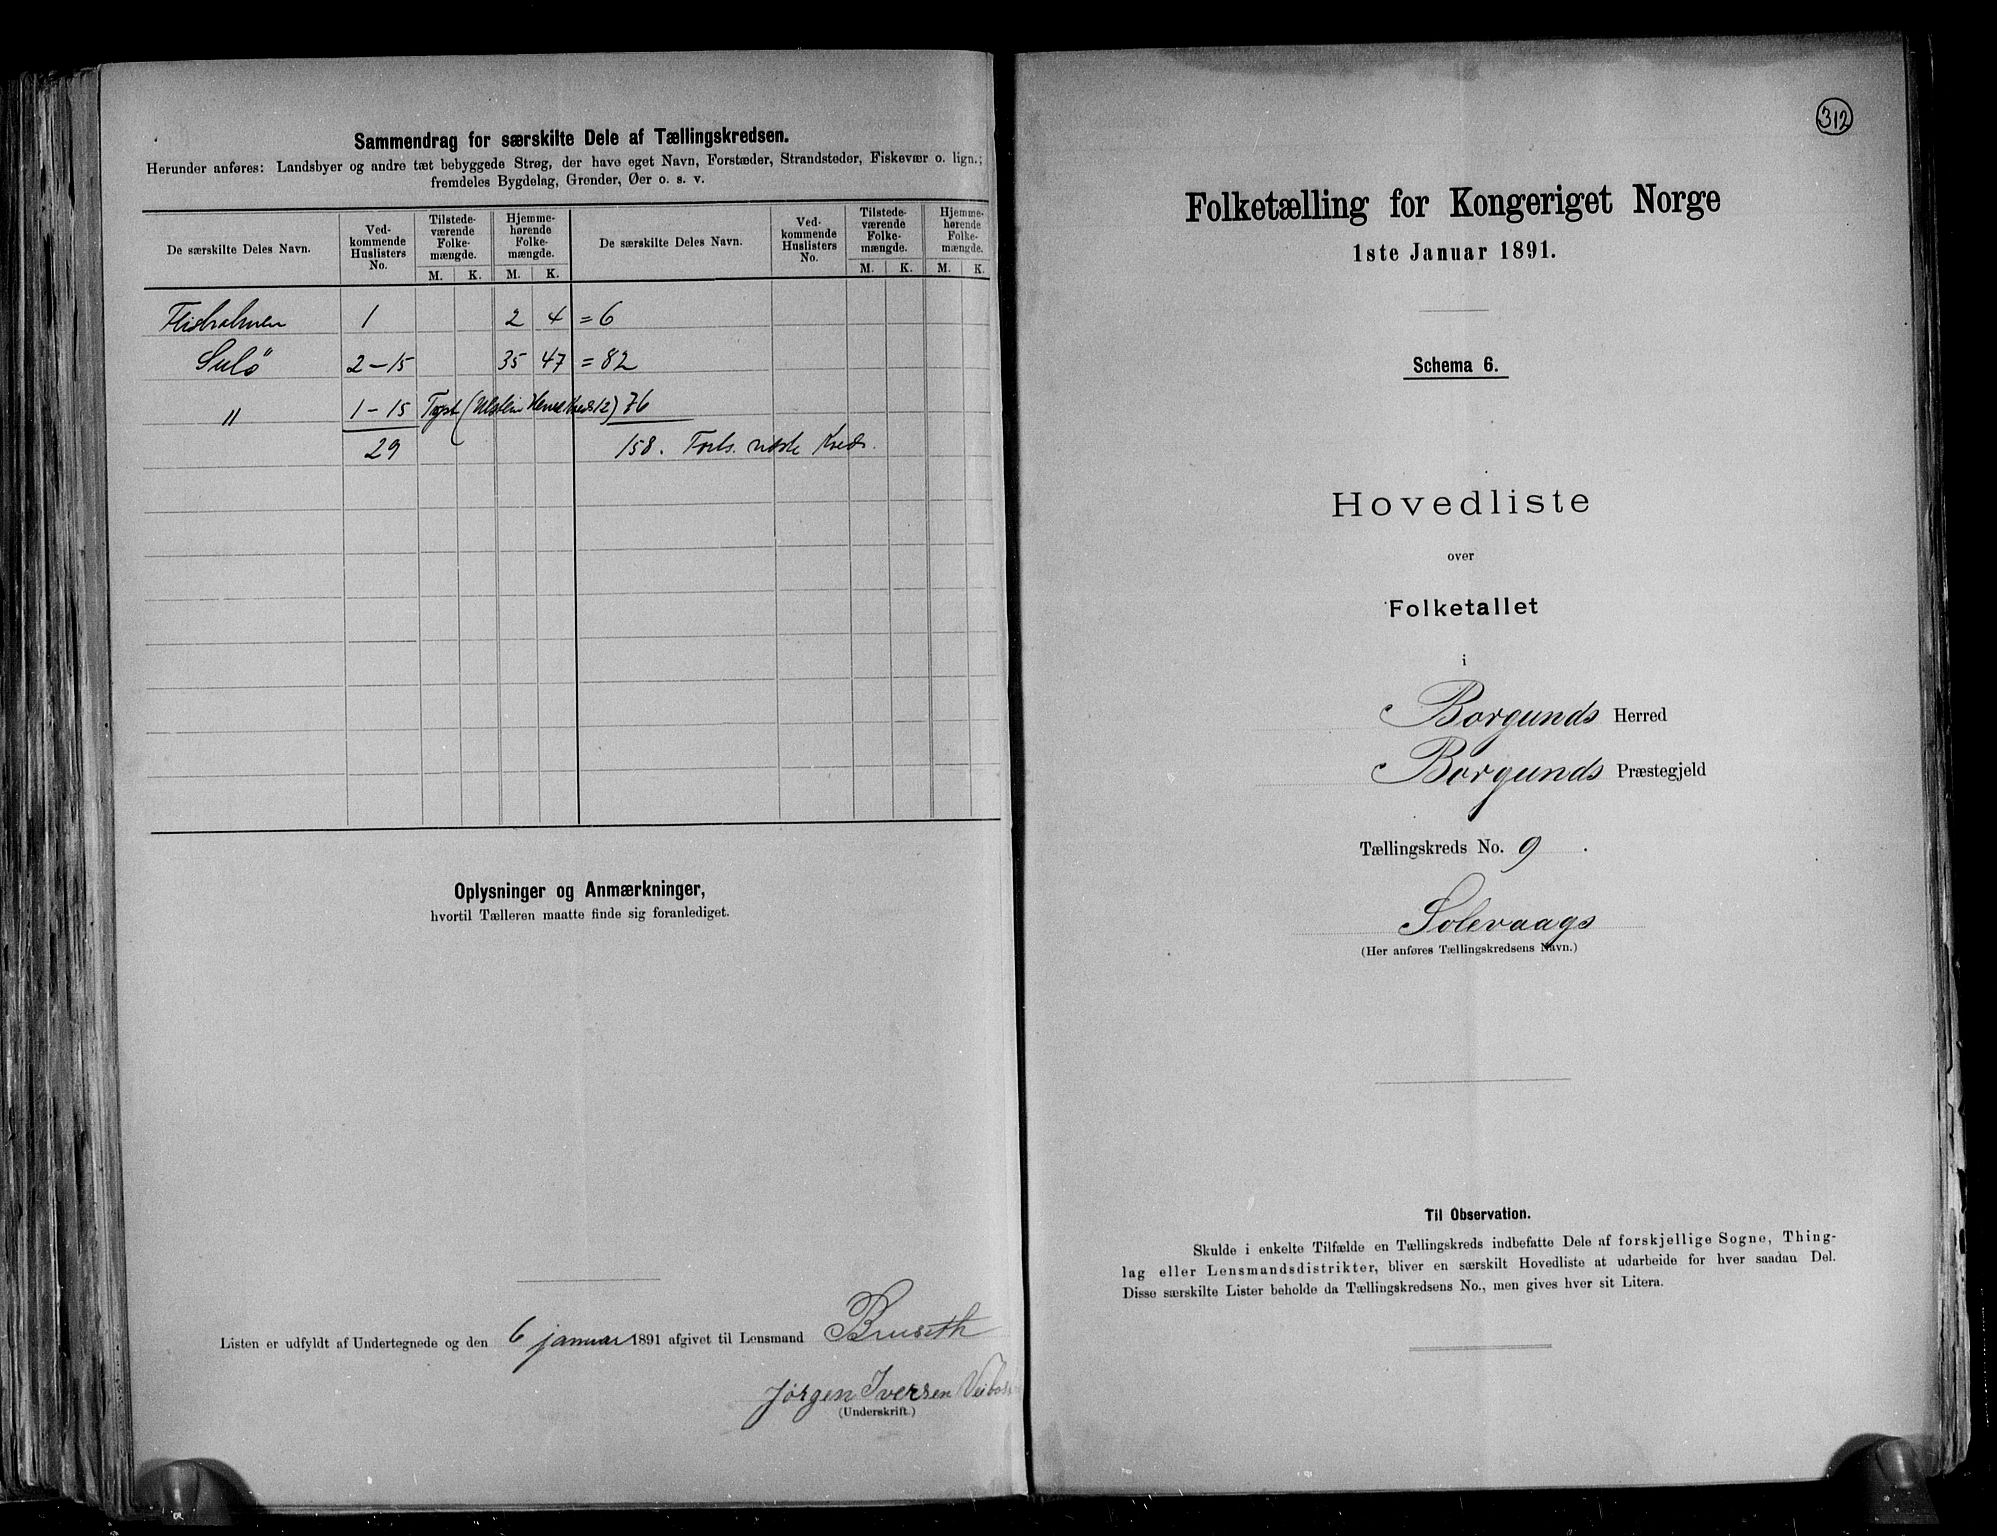 Sammendrag for særskilte Dele af Tællingskredsen.
Herunder anføres: Landsbyer og andre tæt bebyggede Strøg, der have eget Navn, Forstæder, Strandsteder, Fiskevær o. lign.;
fremdeles Bygdelag, Grender, Øer o. s. v.
De særskilte Deles Navn. Ved-kommende Huslisters No. Tilstede-værende Folke-mængde. Hjemme-hørende Folke-mængde. De særskilte Deles Navn. Ved-kommende Huslisters No. Tilstede-værende Folke-mængde. Hjemme-hørende Folke-mængde.
M. K. M. K. M. K. M. K.
Flisholmen 1 2 4 = 6
Sulö 2-15 35 47 = 82
" 1-15 76
29 158. Forts. næste Kreds.
Oplysninger og Anmærkninger,
hvortil Tælleren maatte finde sig foranlediget.
Listen er udfyldt af Undertegnede og den 6 januar 1891 afgivet til Lensmand Bruseth
Jørgen Iversen
(Underskrift.)
312
Folketælling for Kongeriget Norge
1ste Januar 1891.
Schema 6.
Hovedliste
over
Folketallet
i
Borgunds Herred
Borgunds Præstegjeld
Tællingskreds No. 9.
Solevaags
(Her anføres Tællingskredsens Navn.)
Til Observation.
Skulde i enkelte Tilfælde en Tællingskreds indbefatte Dele af forskjellige Sogne, Thing-
lag eller Lensmandsdistrikter, bliver en særskilt Hovedliste at udarbeide for hver saadan Del.
Disse særskilte Lister beholde da Tællingskredsens No., men gives hver sit Litera.